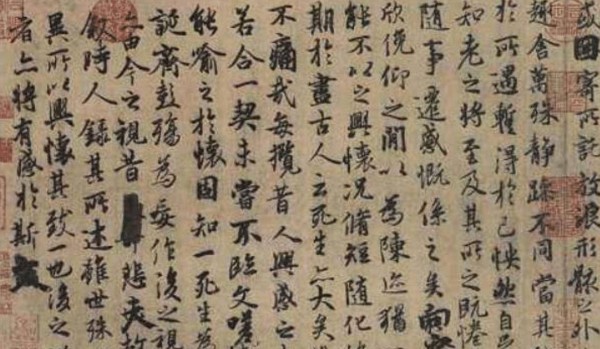 或因寄所託放浪形骸之外
趣舍萬殊静躁不同當其
於所遇蹔得於己怏然自
知老之將至及其所之既惓
隨事遷感慨係之矣向
欣俛仰之閒以為陳迹猶
能不以之興懷况脩短隨化
期於盡古人云死生亦大矣
不痛哉每攬昔人興感之
若合一契未嘗不臨文嗟
能喻之於懷固知一死生為
誕齊彭殤為妄作後之視
亦由今之視昔 悲夫故
敘時人錄其所述雖世殊
異所以興懷其致一也後之
者亦將有感於斯文